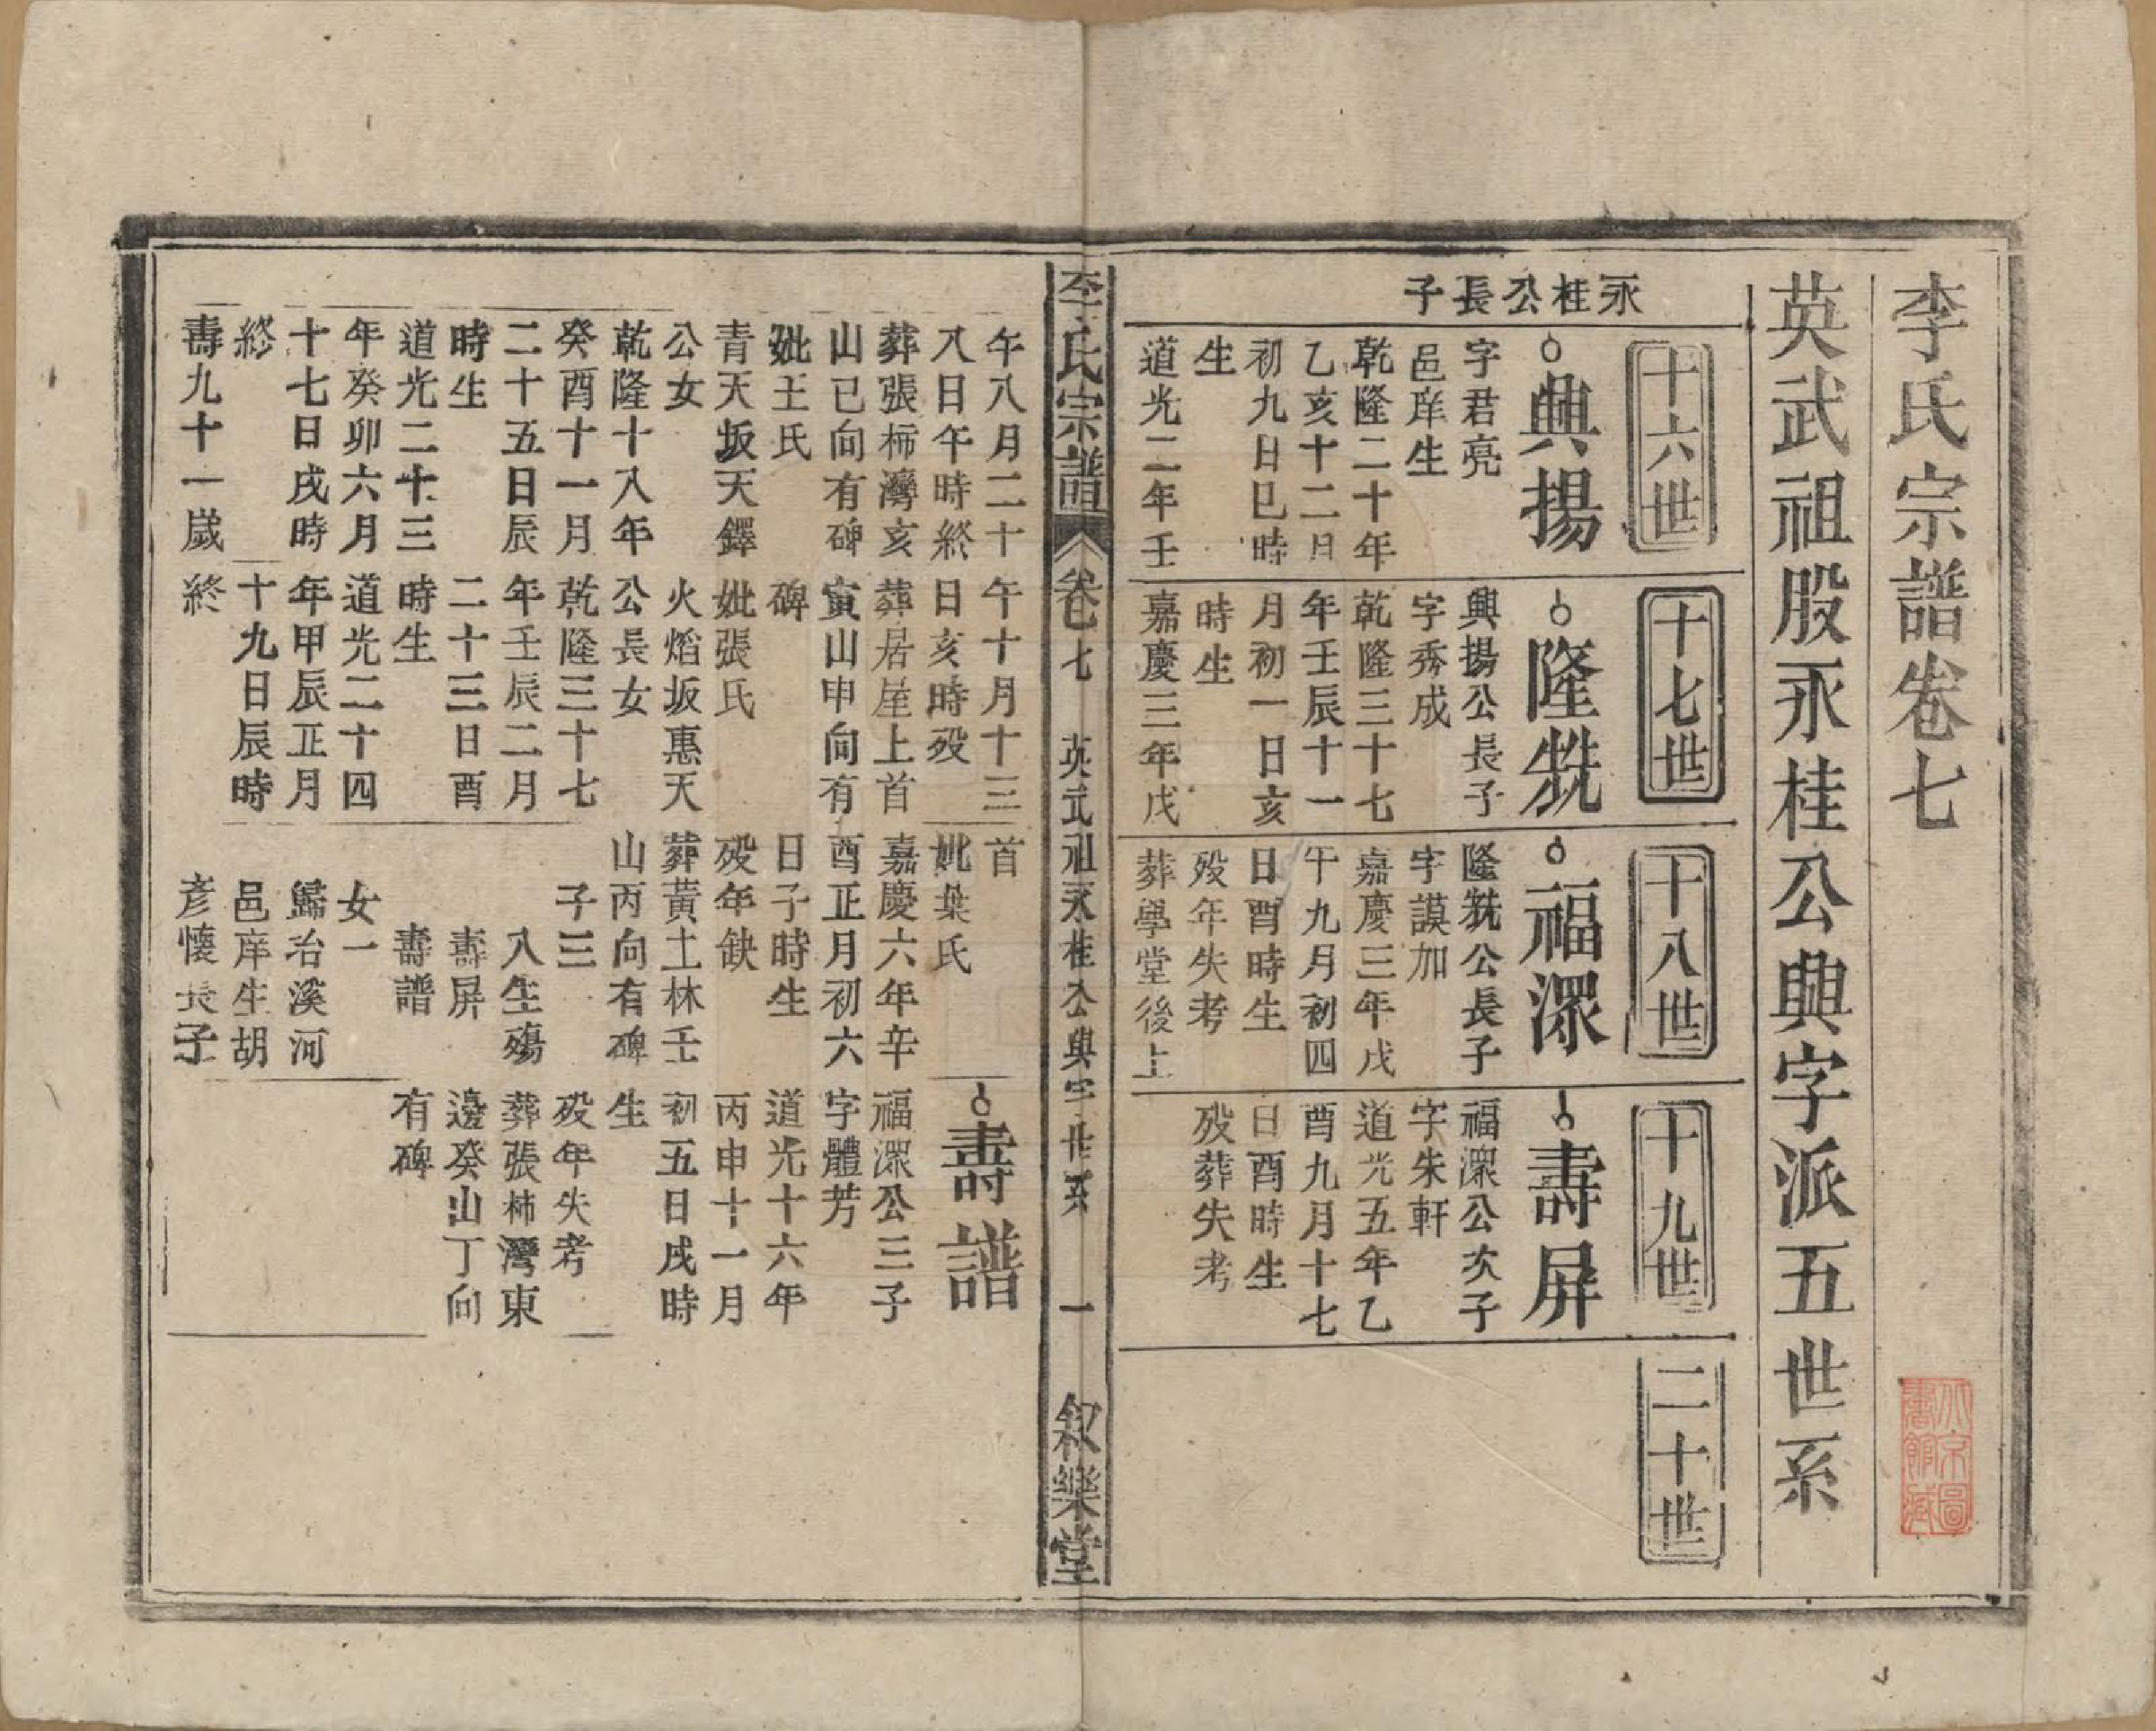 李氏宗譜卷七
英武祖股永桂公興字派五世系
永桂公長子
十六世
興揚
字君亮
邑庠生
乾隆二十年
乙亥十二月
初九日巳時
生
道光二年壬
十七世
隆兟
興揚公長子
字秀成
乾隆三十七
年壬辰十一
月初一日亥
時生
嘉慶三年戊
十八世
福深
隆兟公長子
字謨加
嘉慶三年戊
午九月初四
日酉時生
歿年失考
葬學堂後上
十九世
壽屏
福深公次子
字朱軒
道光五年乙
酉九月十七
日酉時生
歿葬失考
二十世
李氏宗譜
卷七
英武祖永桂公興字世系
一
叙樂堂
午八月二十
八日午時終
葬張柿灣亥
山巳向有碑
妣王氏
青天坂天鐸
公女
乾隆十八年
癸酉十一月
二十五日辰
時生
道光二十三
年癸卯六月
十七日戌時
終
壽九十一歲
午十月十三
日亥時歿
葬居屋上首
寅山申向有
碑
妣張氏
火熖坂惠天
公長女
乾隆三十七
年壬辰二月
二十三日酉
時生
道光二十四
年甲辰正月
十九日辰時
終
首
妣葉氏
嘉慶六年辛
酉正月初六
日子時生
歿年缺
葬黃土林壬
山丙向有碑
子三
八生殤
壽屏
壽譜
女一
歸治溪河
邑庠生胡
彥懷長子
壽譜
福深公三子
字體芳
道光十六年
丙申十一月
初五日戌時
生
歿年失考
葬張柿灣東
邊癸山丁向
有碑